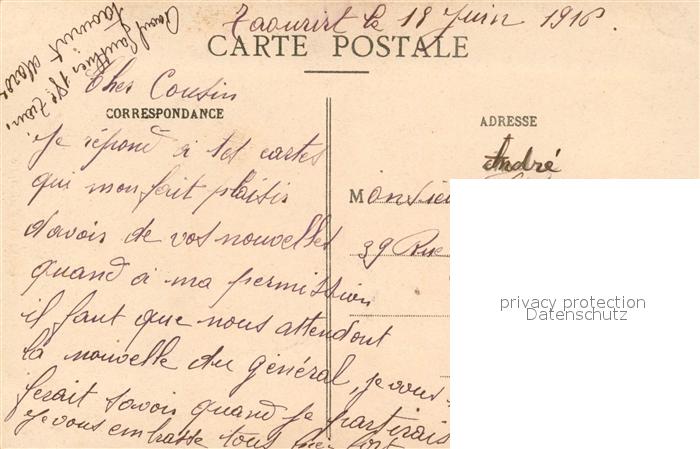 Taourirt le 18 Juin 1916.
CARTE POSTALE
Cher Cousin
CORRESPONDANCE
Je répond a tes cartes
qui mon fait plaisir
davoir de vos nouvelles
quand a ma permission
il faut que nous attendont
la nouvelle du général, je vous
ferait savoir quand je partirais
Je vous embrasse tous bien fort
Taourirt Maroc
ADRESSE
André
Monsieu
39 Rue
privacy protection
Datenschutz